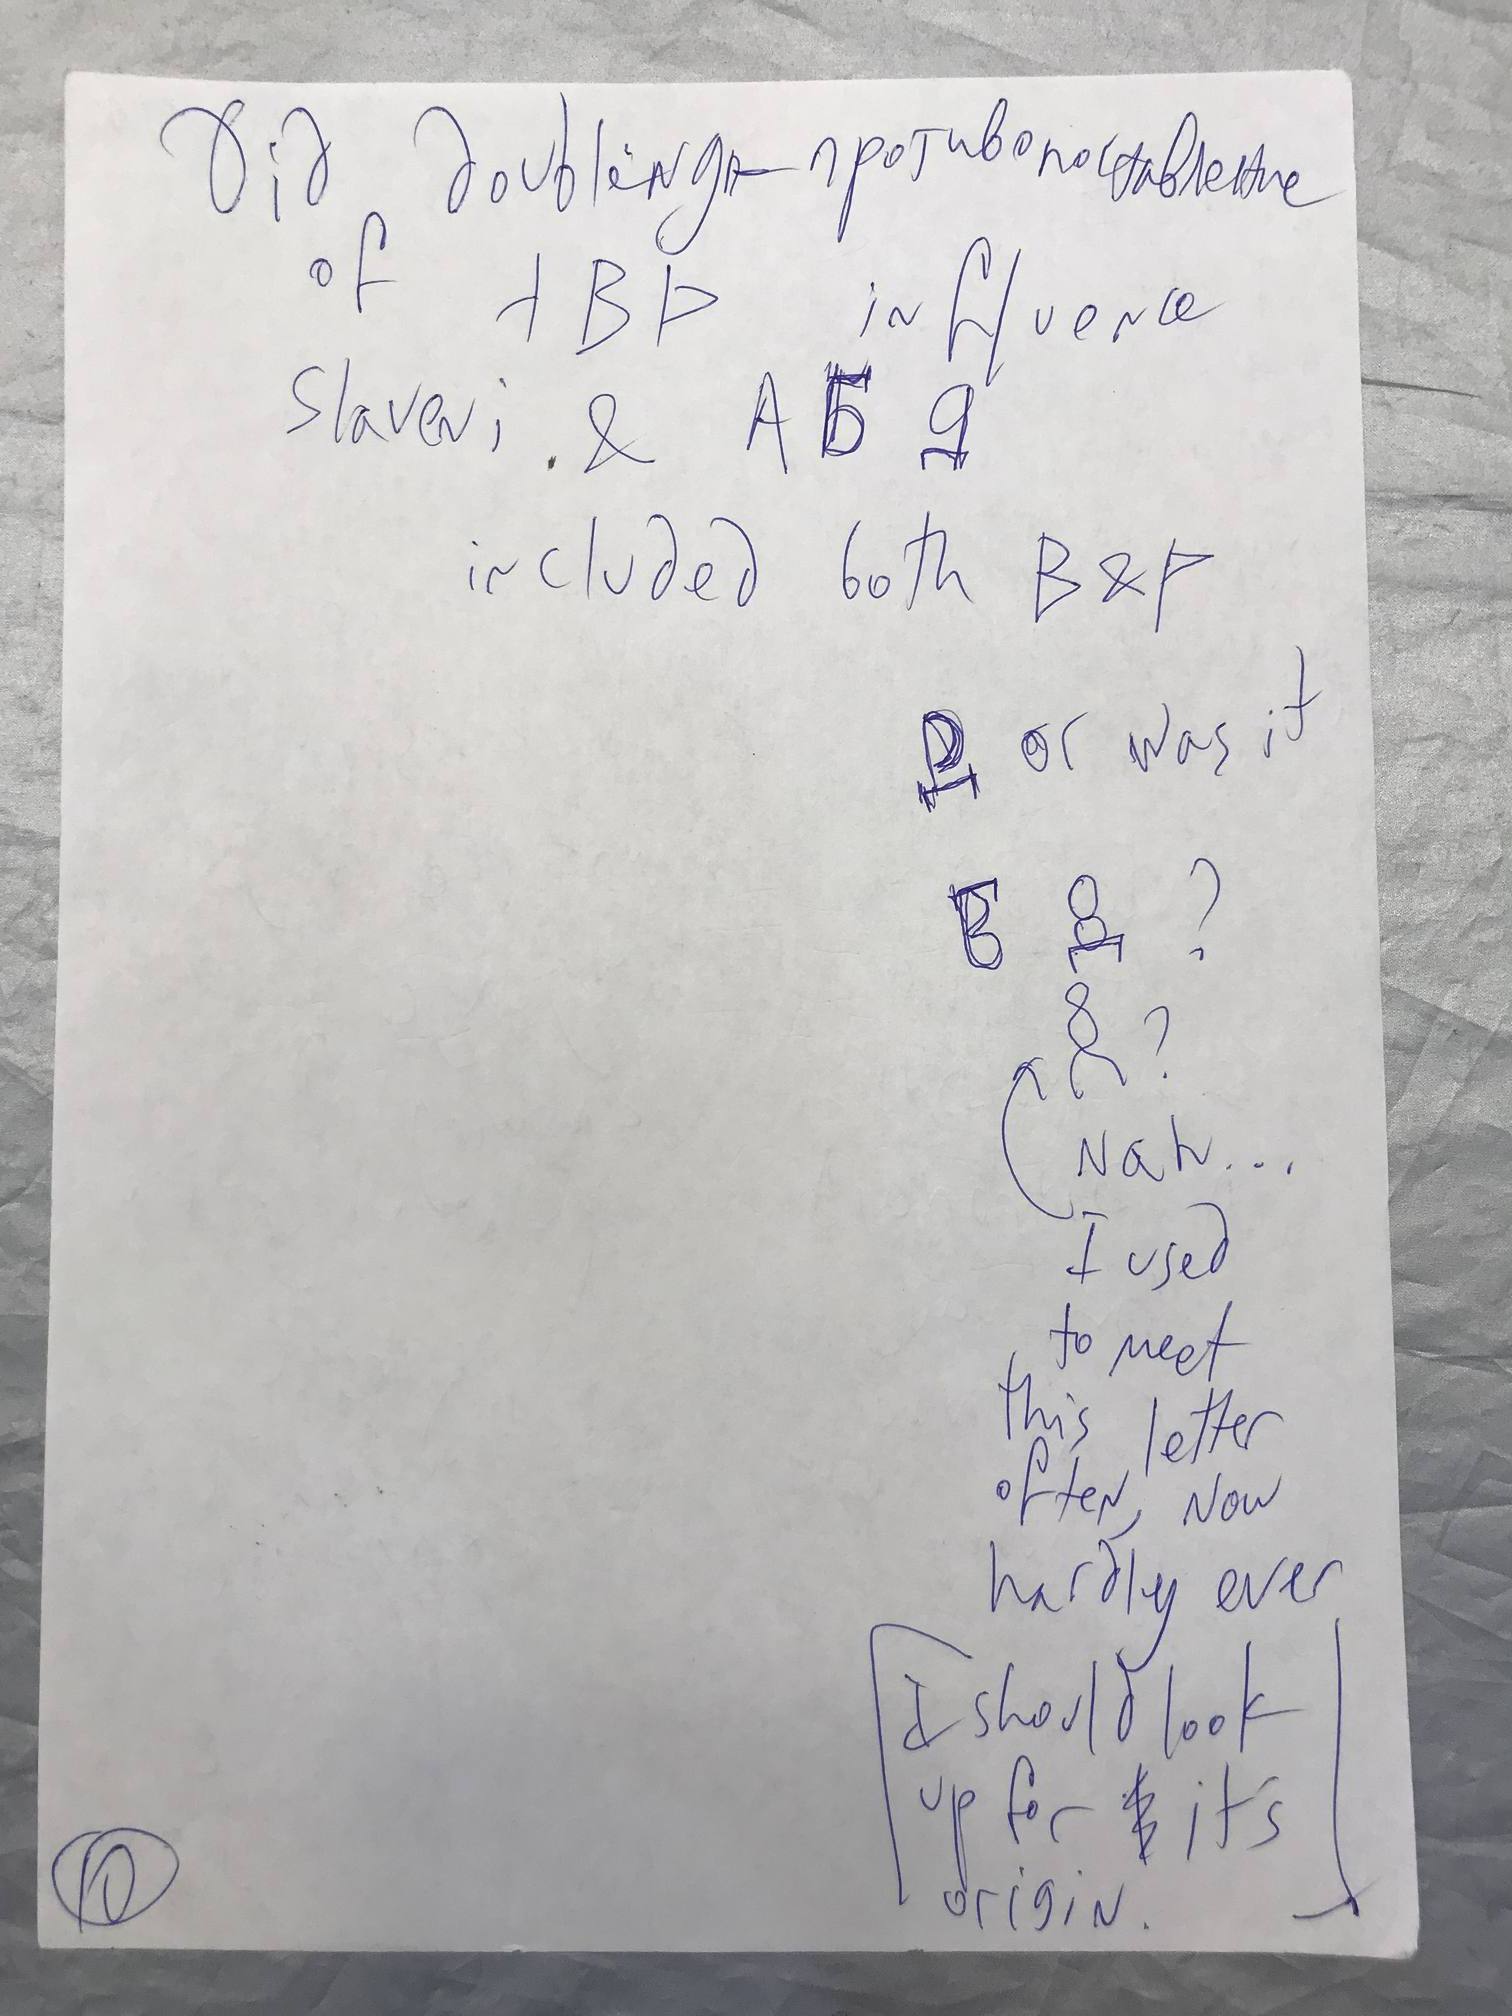 Did doubling-противопоставление
of ᚨBᚹ influence
slaveni. & А Б д
included both B & ᚹ
or was it
Б ?
?
Nah...
I used
to meet
this letter
often, now
hardly ever
I should look
up for it's
origin.
10